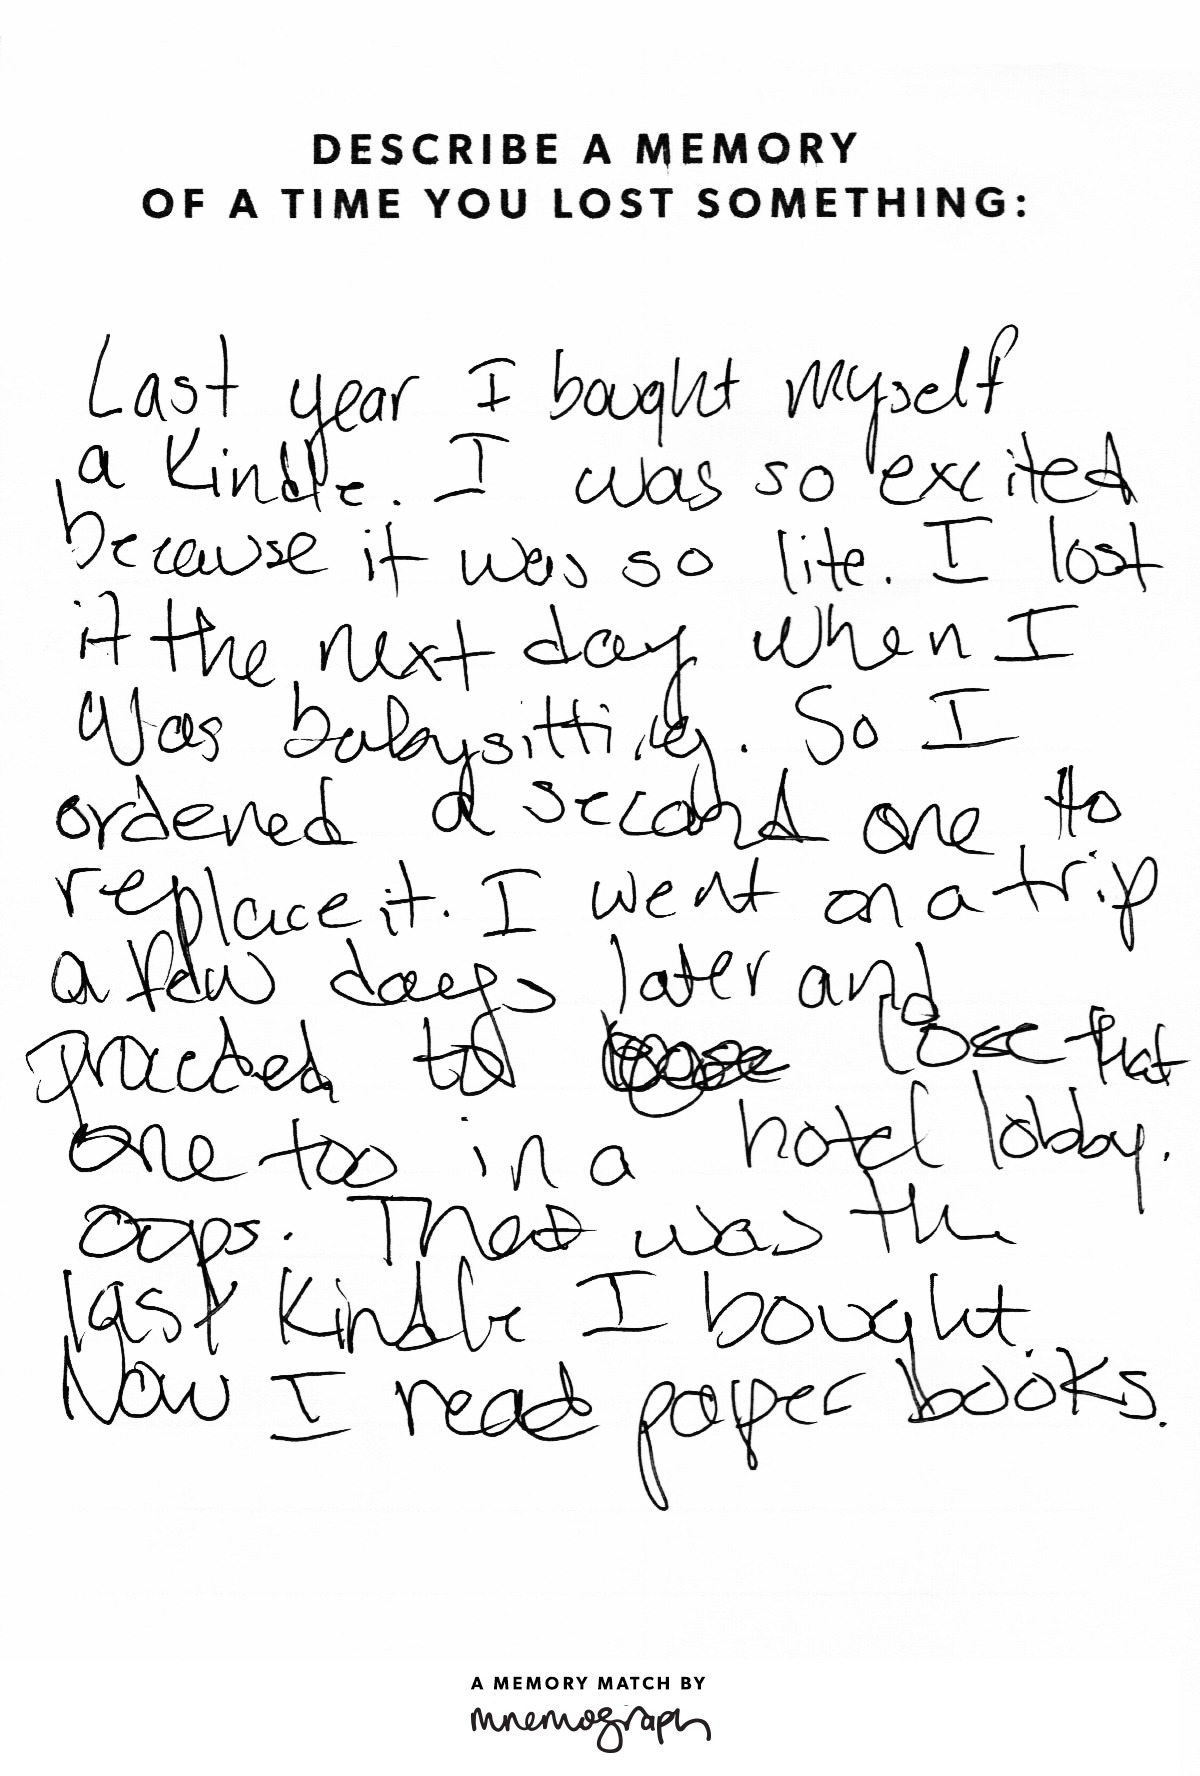 DESCRIBE A MEMORY
OF A TIME YOU LOST SOMETHING:
Last year I bought myself
a Kindle. I was so excited
because it was so lite. I lost
it the next day when I
was babysitting. So I
ordered a second one to
replace it. I went on a trip
a few days later and
proceded to lose that
one too in a hotel lobby.
oops. That was the
last Kindle I bought.
Now I read paper books.
A MEMORY MATCH BY
mnemograph